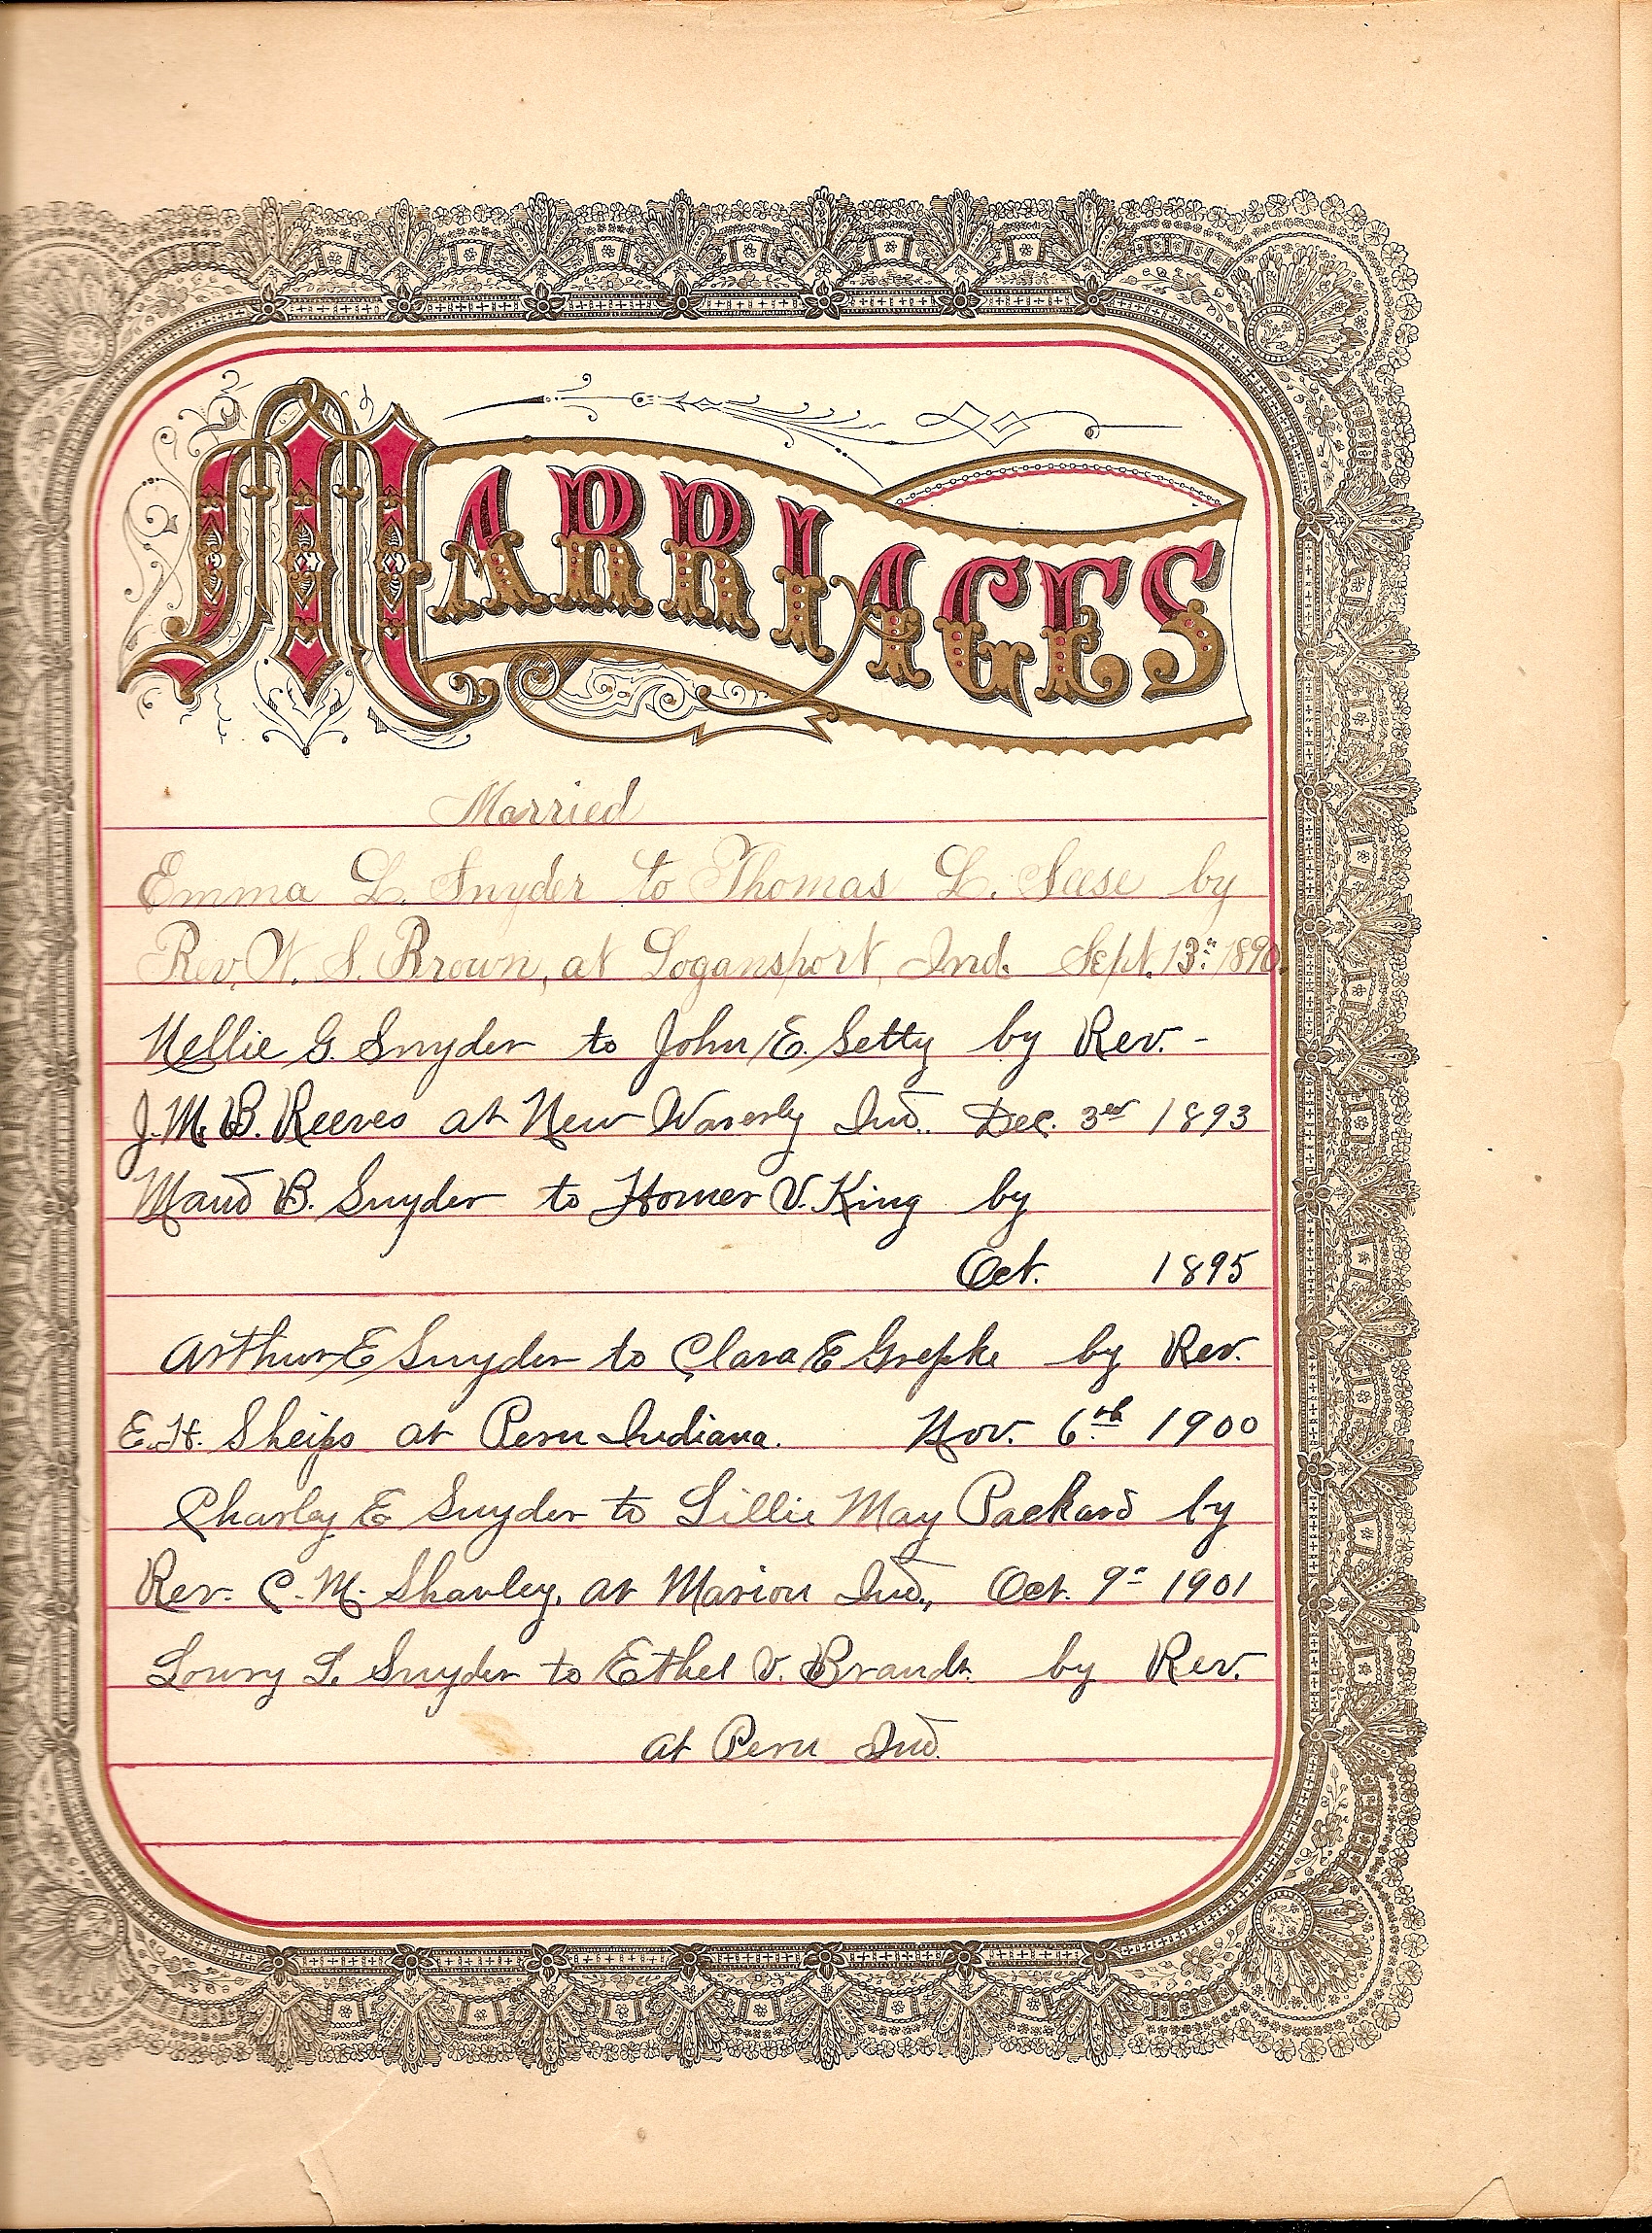 MARRIAGES
Married
Emma L. Snyder to Thomas L. Seese by
Rev. W. S. Brown, at Logansport, Ind. Sept. 13th 1890.
Nellie G. Snyder to John E. Setty by Rev. -
J. M. B. Reeves at New Waverly Ind. Dec. 3rd 1893
Maud B. Snyder to Homer V. King by
Oct. 1895
Arthur E Snyder to Clara E Grepke by Rev.
E. H. Sheips at Peru Indiana. Nov. 6th 1900
Charley E Snyder to Lillie May Packard by
Rev. C. M. Shavley, at Marion Ind., Oct. 9th 1901
Lowry L. Snyder to Ethel V. Brandt. by Rev.
at Peru Ind.